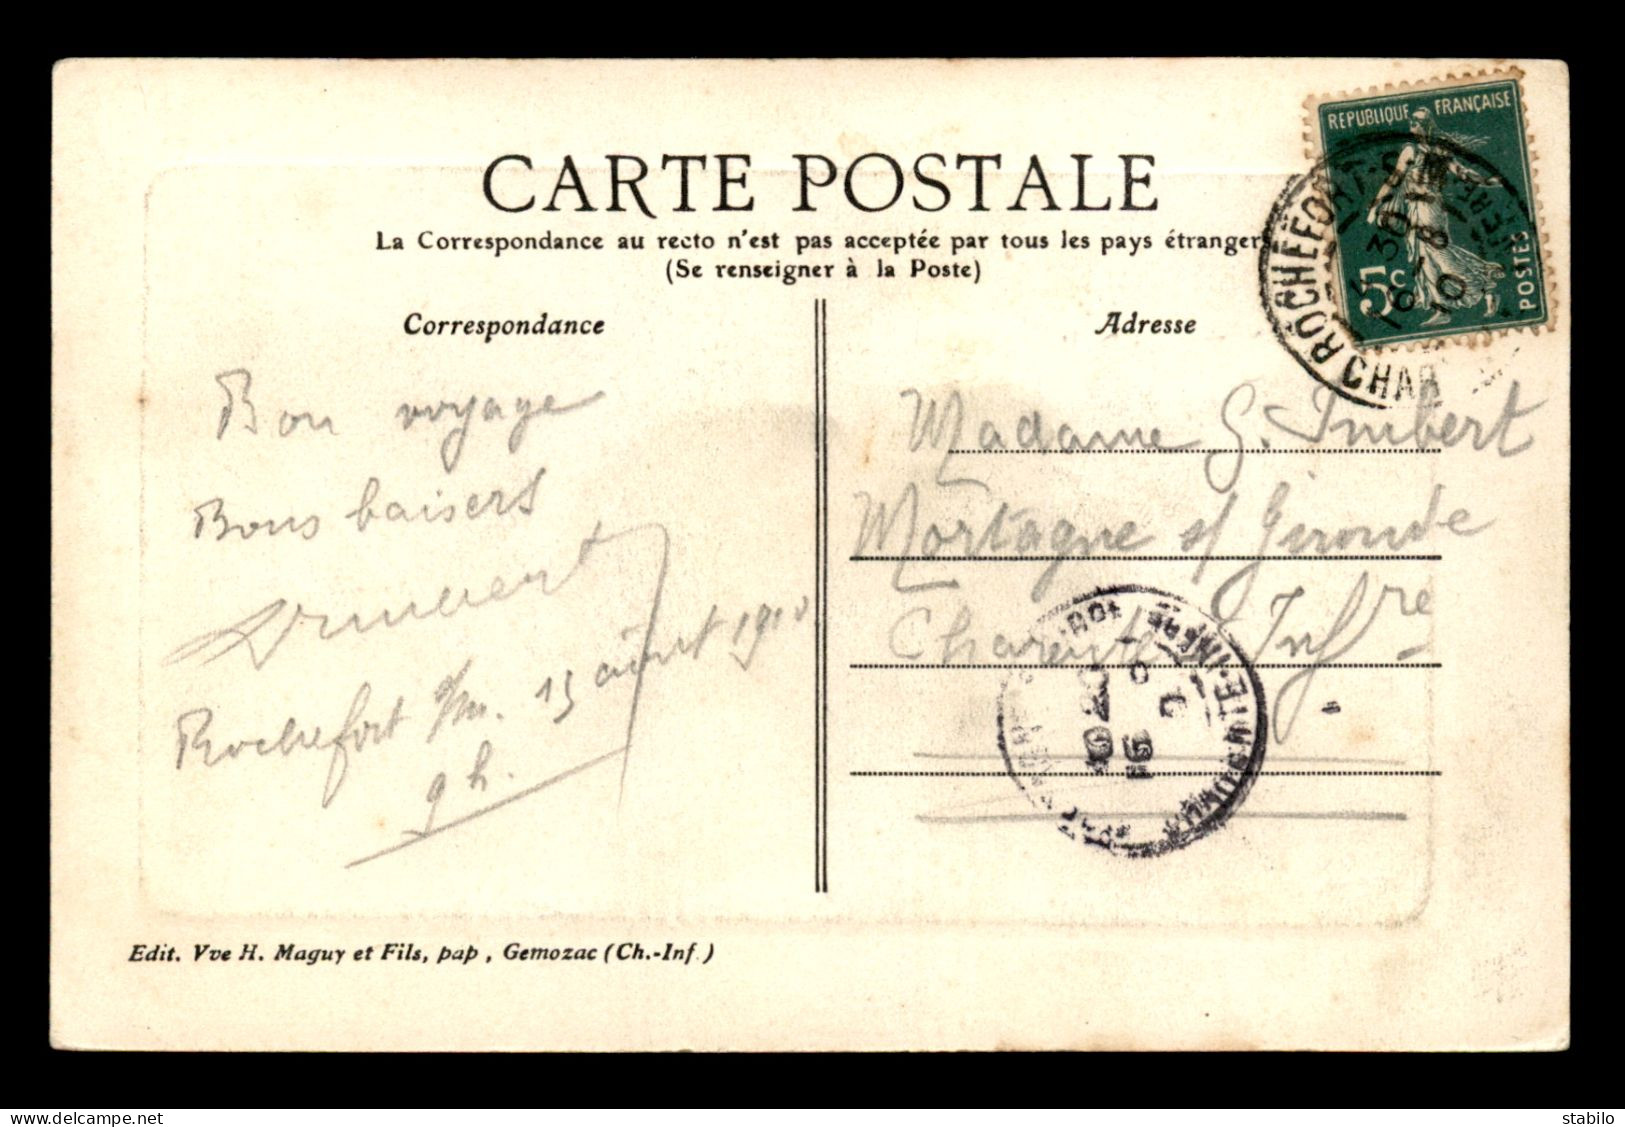 CARTE POSTALE
La Correspondance au recto n'est pas acceptée par tous les pays étrangers
(Se renseigner à la Poste)
Correspondance
Adresse
REPUBLIQUE FRANÇAISE
POSTES
5c
ROCHEFORT-S-M
CHAR
Bon voyage
Bons baisers
Rochefort s/m. 15 août 1910
9 h.
Madame G. Imbert
Mortagne s/ Gironde
Charente Infre
Edit. Vve H. Maguy et Fils, pap, Gemozac (Ch.-Inf.)
delcampe.net
stabilo